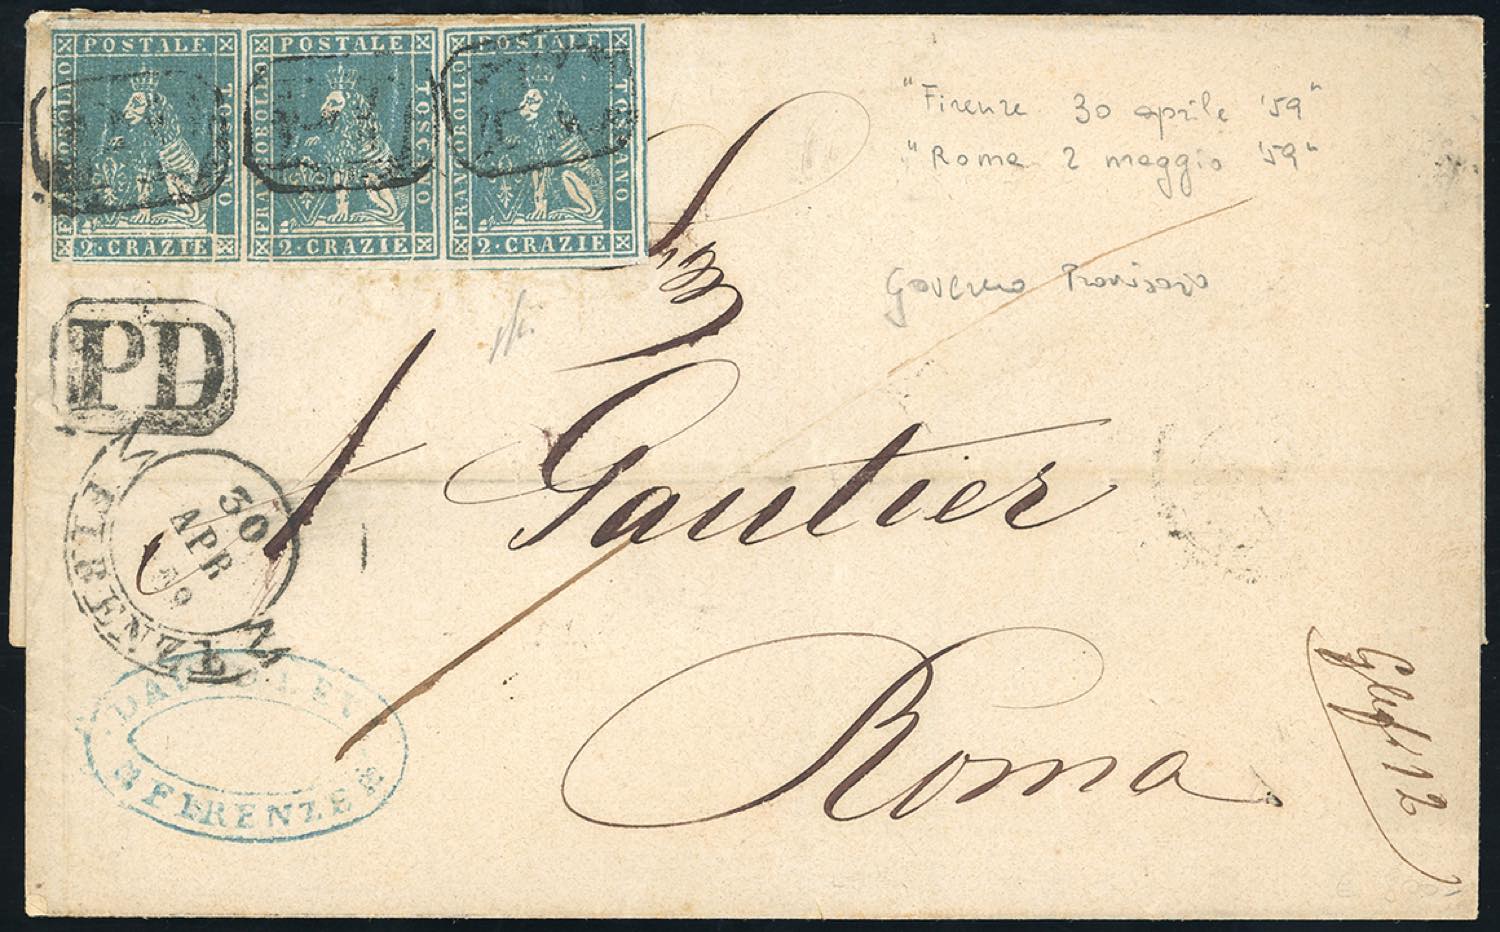 FRANCOBOLLO POSTALE TOSCANO
2·CRAZIE
FRANCOBOLLO POSTALE TOSCANO
2·CRAZIE
FRANCOBOLLO POSTALE TOSCANO
2·CRAZIE
PD
PD
PD
"Firenze 30 aprile '59"
"Roma 2 maggio '59"
Governo Provvisorio
PD
FIRENZE
30
APR
59
Gautier
Roma
FIRENZE
12